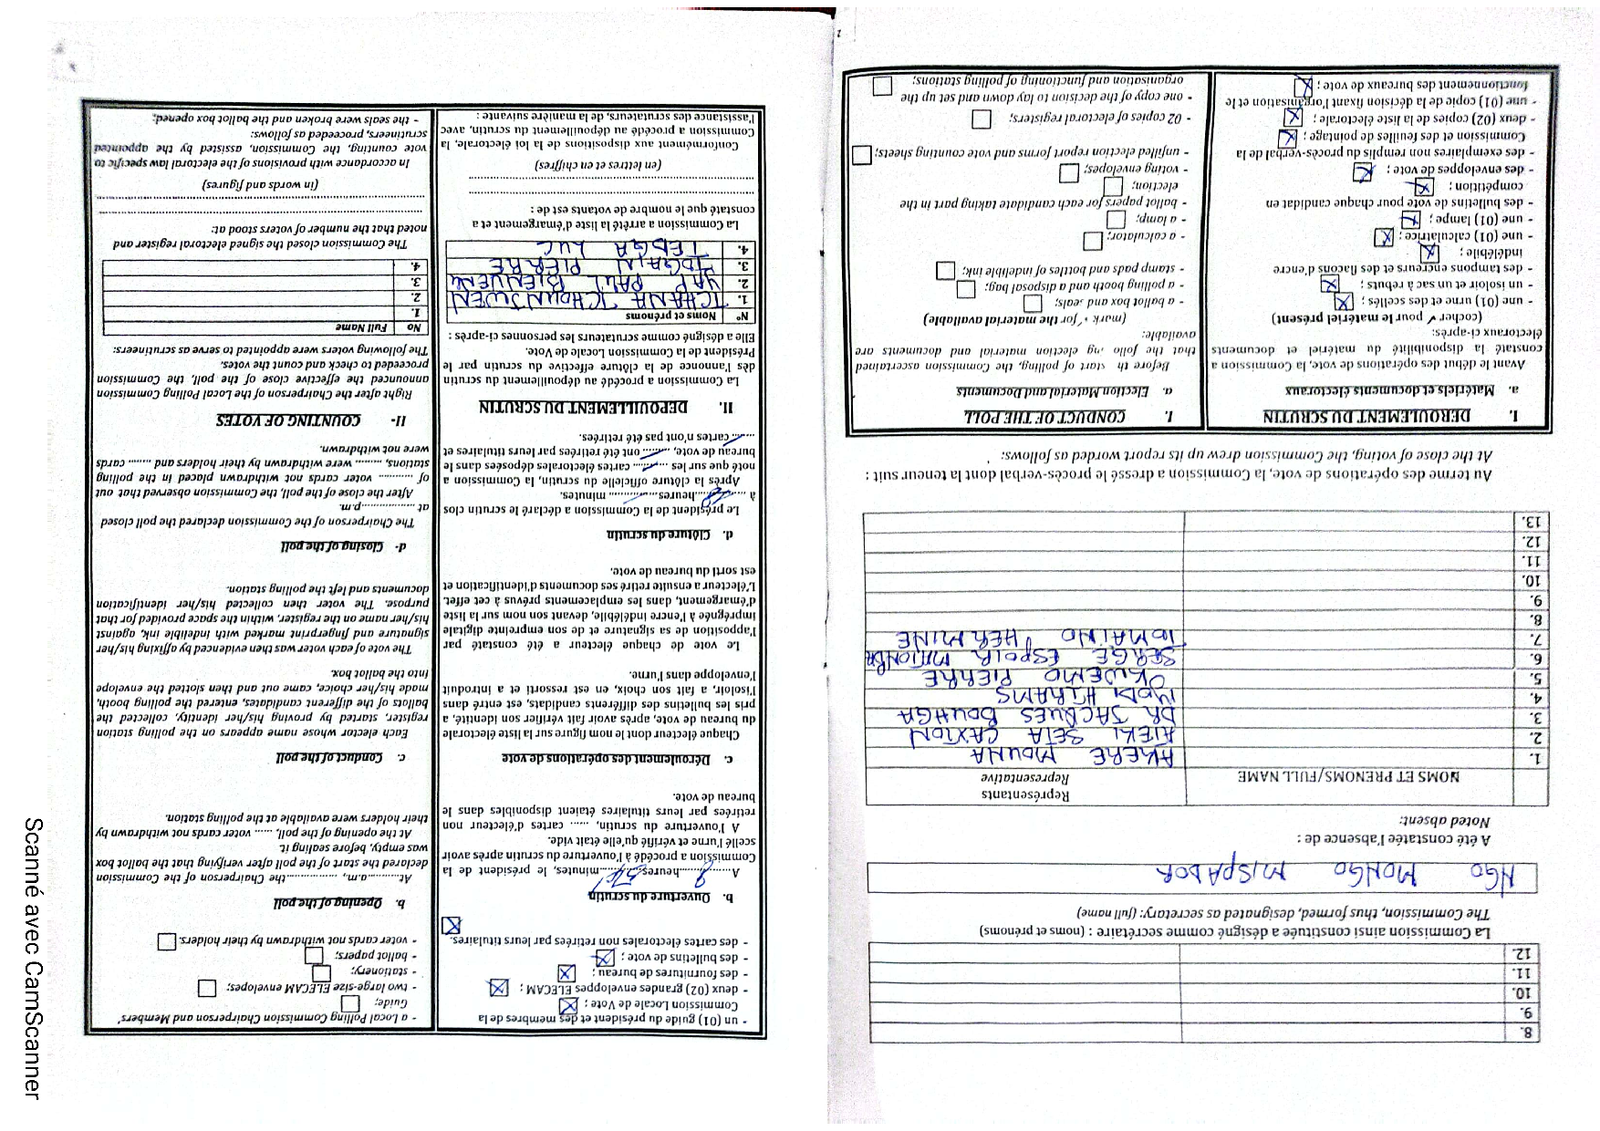 8.
9.
10.
11.
12.
La Commission ainsi constituée a désigné comme secrétaire : (noms et prénoms)
The Commission, thus formed, designated as secretary: (full name)
NGO MONGO MISPADOR
A été constatée l'absence de :
Noted absent:
NOMS ET PRENOMS/FULL NAME
Représentants
Representative
1. AKERE MOUNA
2. ATEKI SETA CAXTON
3. DR JACQUES BOUHGA
4. IYODI HIRAMS
5. OKWEMO PIERRE
6. SERGE ESPOIR MATIOMBA
7. TOMAINO HERMINE
8.
9.
10.
11.
12.
13.
Au terme des opérations de vote, la Commission a dressé le procès-verbal dont la teneur suit :
At the close of voting, the Commission drew up its report worded as follows:
I. DEROULEMENT DU SCRUTIN
a. Matériels et documents électoraux
Avant le début des opérations de vote, la Commission a
constaté la disponibilité du matériel et documents
électoraux ci-après:
(cocher ✓ pour le matériel présent)
- une (01) urne et des scellés ;
- un isoloir et un sac à rebuts ;
- des tampons encreurs et des flacons d'encre
indélébile ;
- une (01) calculatrice ;
- une (01) lampe ;
- des bulletins de vote pour chaque candidat en
compétition ;
- des enveloppes de vote ;
- des exemplaires non remplis du procès-verbal de la
Commission et des feuilles de pointage ;
- deux (02) copies de la liste électorale ;
- une (01) copie de la décision fixant l'organisation et le
fonctionnement des bureaux de vote ;
I. CONDUCT OF THE POLL
a. Election Material and Documents
Before th start of polling, the Commission ascertained
that the follo ng election material and documents are
available:
(mark ✓ for the material available)
- a ballot box and seals;
- a polling booth and a disposal bag;
- stamp pads and bottles of indelible ink;
- a calculator;
- a lamp;
- ballot papers for each candidate taking part in the
election;
- voting envelopes;
- unfilled election report forms and vote counting sheets;
- 02 copies of electoral registers;
- one copy of the decision to lay down and set up the
organisation and functioning of polling stations;
- un (01) guide du président et des membres de la
Commission Locale de Vote ;
- deux (02) grandes enveloppes ELECAM ;
- des fournitures de bureau ;
- des bulletins de vote ;
- des cartes électorales non retirées par leurs titulaires.
b. Ouverture du scrutin
A 8 heures minutes, le président de la
Commission a procédé à l'ouverture du scrutin après avoir
scellé l'urne et vérifié qu'elle était vide.
A l'ouverture du scrutin, ...... cartes d'électeur non
retirées par leurs titulaires étaient disponibles dans le
bureau de vote.
c. Déroulement des opérations de vote
Chaque électeur dont le nom figure sur la liste électorale
du bureau de vote, après avoir fait vérifier son identité, a
pris les bulletins des différents candidats, est entré dans
l'isoloir, a fait son choix, en est ressorti et a introduit
l'enveloppe dans l'urne.
Le vote de chaque électeur a été constaté par
l'apposition de sa signature et de son empreinte digitale
imprégnée à l'encre indélébile, devant son nom sur la liste
d'émargement, dans les emplacements prévus à cet effet.
L'électeur a ensuite retiré ses documents d'identification et
est sorti du bureau de vote.
d. Clôture du scrutin
Le président de la Commission a déclaré le scrutin clos
à heures minutes.
Après la clôture officielle du scrutin, la Commission a
noté que sur les cartes électorales déposées dans le
bureau de vote, ont été retirées par leurs titulaires et
cartes n'ont pas été retirées.
II. DEPOUILLEMENT DU SCRUTIN
La Commission a procédé au dépouillement du scrutin
dès l'annonce de la clôture effective du scrutin par le
Président de la Commission Locale de Vote.
Elle a désigné comme scrutateurs les personnes ci-après :
N° Noms et prénoms
1. TCHANA TCHOUNJWEN
2. YAP PAUL BIENVENU
3. TDGAIN PIERRE
4. TEDGA LUC
La Commission a arrêté la liste d'émargement et a
constaté que le nombre de votants est de :
(en lettres et en chiffres)
Conformément aux dispositions de la loi électorale, la
Commission a procédé au dépouillement du scrutin, avec
l'assistance des scrutateurs, de la manière suivante :
- a Local Polling Commission Chairperson and Members'
Guide;
- two large-size ELECAM envelopes;
- stationery;
- ballot papers;
- voter cards not withdrawn by their holders.
b. Opening of the poll
At............a.m, ..................the Chairperson of the Commission
declared the start of the poll after verifying that the ballot box
was empty, before sealing it.
At the opening of the poll, ...... voter cards not withdrawn by
their holders were available at the polling station.
c. Conduct of the poll
Each elector whose name appears on the polling station
register, started by proving his/her identity, collected the
ballots of the different candidates, entered the polling booth,
made his/her choice, came out and then slotted the envelope
into the ballot box.
The vote of each voter was then evidenced by affixing his/her
signature and fingerprint marked with indelible ink, against
his/her name on the register, within the space provided for that
purpose. The voter then collected his/her identification
documents and left the polling station.
d- Closing of the poll
The Chairperson of the Commission declared the poll closed
at ....................p.m.
After the close of the poll, the Commission observed that out
of .......... voter cards not withdrawn placed in the polling
stations, ........ were withdrawn by their holders and ....... cards
were not withdrawn.
II- COUNTING OF VOTES
Right after the Chairperson of the Local Polling Commission
announced the effective close of the poll, the Commission
proceeded to check and count the votes.
The following voters were appointed to serve as scrutineers:
No Full Name
1.
2.
3.
4.
The Commission closed the signed electoral register and
noted that the number of voters stood at:
(in words and figures)
In accordance with provisions of the electoral law specific to
vote counting, the Commission, assisted by the appointed
scrutineers, proceeded as follows:
- the seals were broken and the ballot box opened;
Scanné avec CamScanner